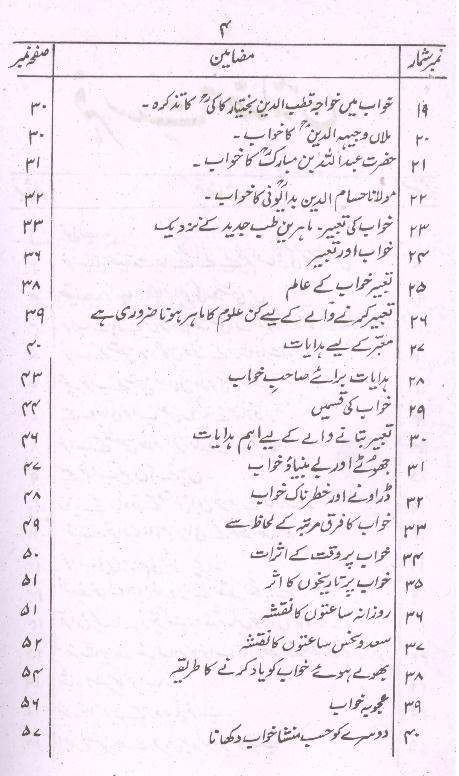 ۴
نمبر شمار مضامین صفحہ نمبر
۱۹ خواب میں خواجہ قطب الدین بختیار کاکیؒ کا تذکرہ ۔ ۳۰
۲۰ ملاں وجیہہ الدینؒ کا خواب ۔ ۳۰
۲۱ حضرت عبداللہ بن مبارکؒ کا خواب ۔ ۳۱
۲۲ مولانا حسام الدین بدایونی کا خواب ۔ ۳۲
۲۳ خواب کی تعبیر ۔ ماہرین طب جدید کے نزدیک ۳۳
۲۴ خواب اور تعبیر ۳۶
۲۵ تعبیر خواب کے عالم ۳۸
۲۶ تعبیر کرنے والے کے لیے کن علوم کا ماہر ہونا ضروری ہے ۳۹
۲۷ معبّر کے لیے ہدایات ۴۰
۲۸ ہدایات برائے صاحبِ خواب ۴۳
۲۹ خواب کی قسمیں ۴۴
۳۰ تعبیر بتانے والے کے لیے اہم ہدایات ۴۶
۳۱ جھوٹے اور بے بنیاد خواب ۴۷
۳۲ ڈراونے اور خطرناک خواب ۴۸
۳۳ خواب کا فرق مرتبہ کے لحاظ سے ۴۹
۳۴ خواب پر وقت کے اثرات ۵۰
۳۵ خواب پر تاریخوں کا اثر ۵۱
۳۶ روزانہ ساعتوں کا نقشہ ۵۱
۳۷ سعد و نحس ساعتوں کا نقشہ ۵۲
۳۸ بھولے ہوئے خواب کو یاد کرنے کا طریقہ ۵۴
۳۹ عجوبہ خواب ۵۶
۴۰ دوسرے کو حسب منشا خواب دکھانا ۵۷